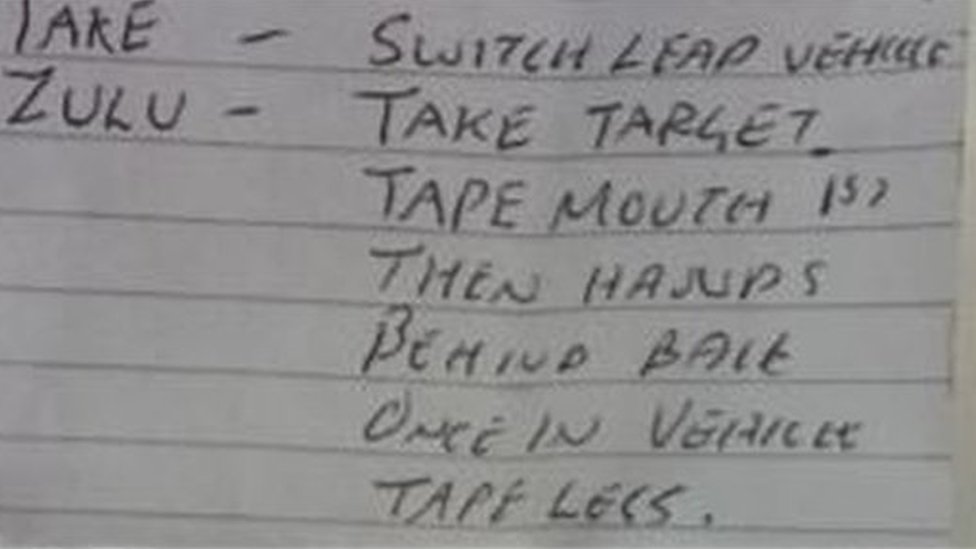 TAKE - SWITCH LEAD VEHICLE
ZULU - TAKE TARGET.
TAPE MOUTH 1ST
THEN HANDS
BEHIND BACK
ONCE IN VEHICLE
TAPE LEGS.